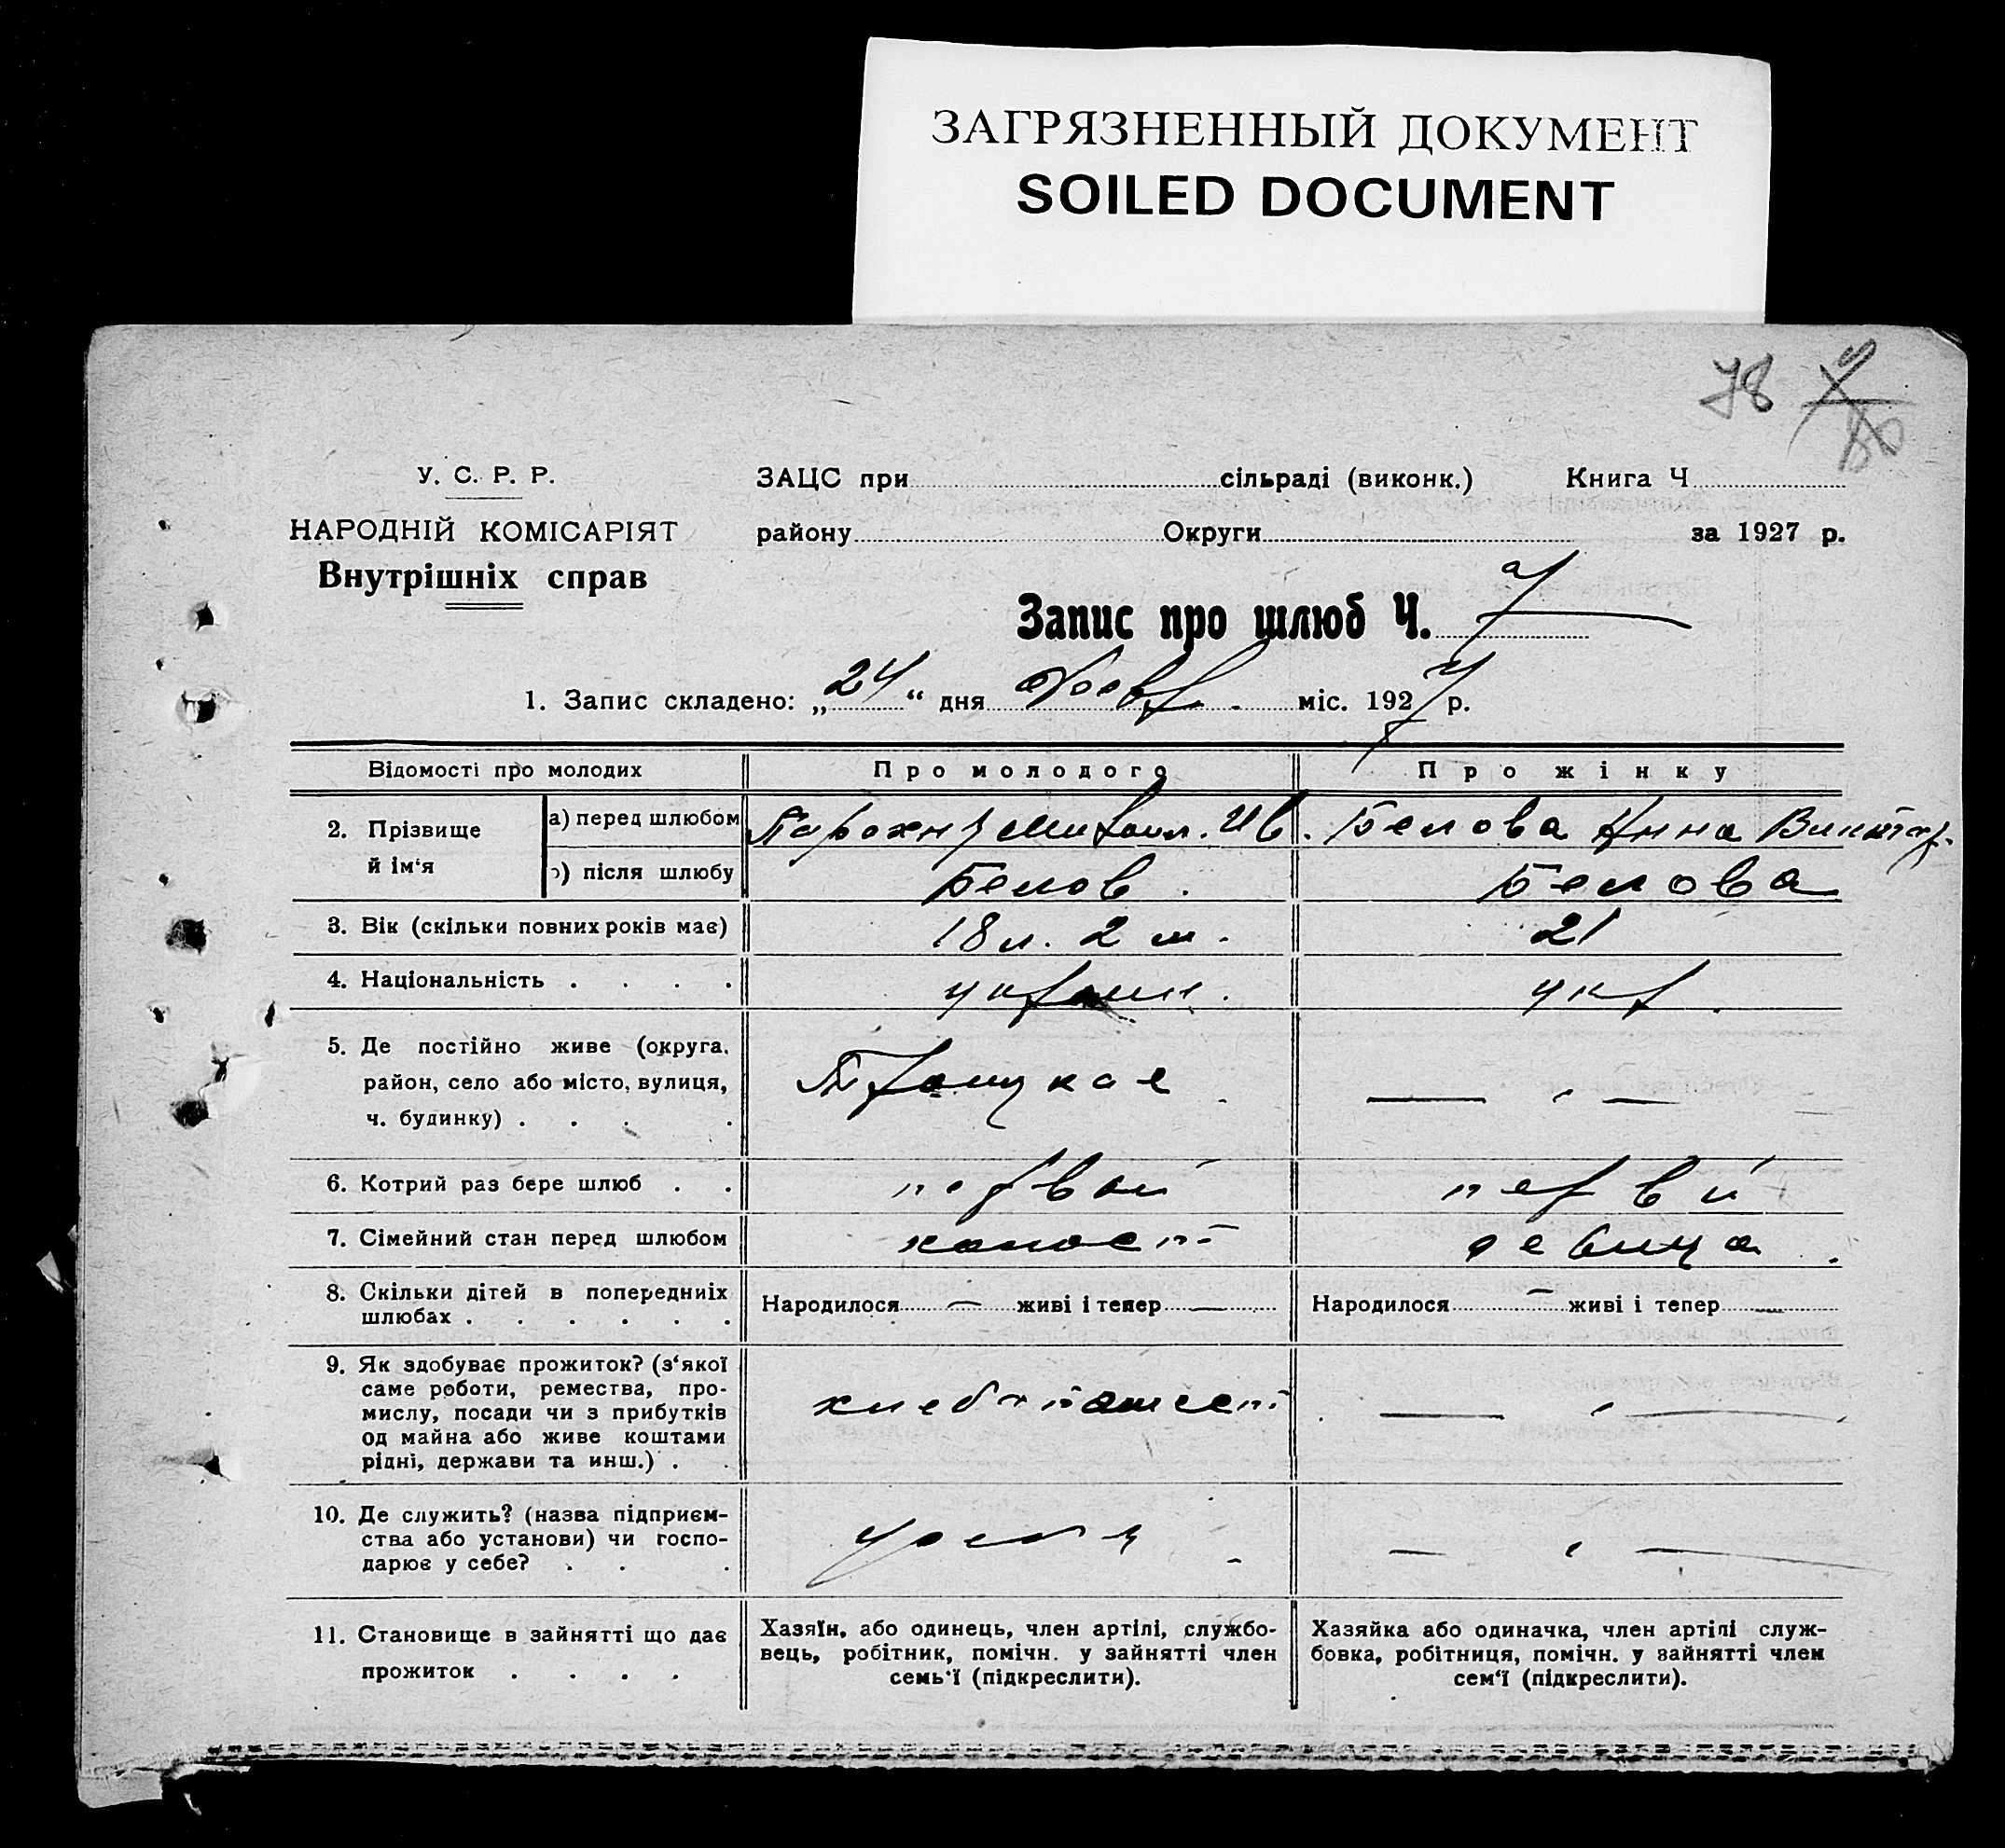 ЗАГРЯЗНЕННЫЙ ДОКУМЕНТ
SOILED DOCUMENT
78
У. С. Р. Р.
НАРОДНІЙ КОМІСАРІЯТ
Внутрішніх справ
ЗАЦС при сільраді (виконк.) Книга Ч
району Округи за 1927 р.
Запис про шлюб Ч. 7
1. Запис складено: „24“ дня міс. 1927 р.
Відомості про молодих Про молодого Про жінку
2. Прізвище й ім‘я
а) перед шлюбом Ив. Белова Анна
) після шлюбу Белов. Белова
3. Вік (скільки повних років має) 18 л. 2 м. 21
4. Національність . . . . украин. укр.
5. Де постійно живе (округа,
район, село або місто, вулиця,
ч. будинку) . . . . — „ —
6. Котрий раз бере шлюб . . первый первй
7. Сімейний стан перед шлюбом холост девица.
8. Скільки дітей в попередниіх
шлюбах . . . . . .
Народилося — живі і тепер — Народилося — живі і тепер —
9. Як здобуває прожиток? (з‘якої
саме роботи, ремества, про-
мислу, посади чи з прибутків
од майна або живе коштами
рідні, держави та инш.) .
хлебопашест — „ —
10. Де служить? (назва підприєм-
ства або установи) чи госпо-
дарює у себе? . . .
— „ —
11. Становище в зайнятті що дає
прожиток . . . .
Хазяїн, або одинець, член артілі, службо-
вець, робітник, помічн. у зайнятті член
семь‘ї (підкреслити).
Хазяйка або одиначка, член артілі служ-
бовка, робітниця, помічн. у зайнятті член
сем‘ї (підкреслити).